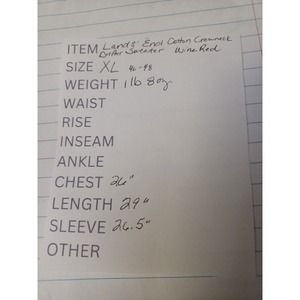 ITEM Lands' End Cotton Crewneck
Drifter Sweater Wine Red
SIZE XL 46-48
WEIGHT 1 lb 8 oz
WAIST
RISE
INSEAM
ANKLE
CHEST 26"
LENGTH 29"
SLEEVE 26.5"
OTHER